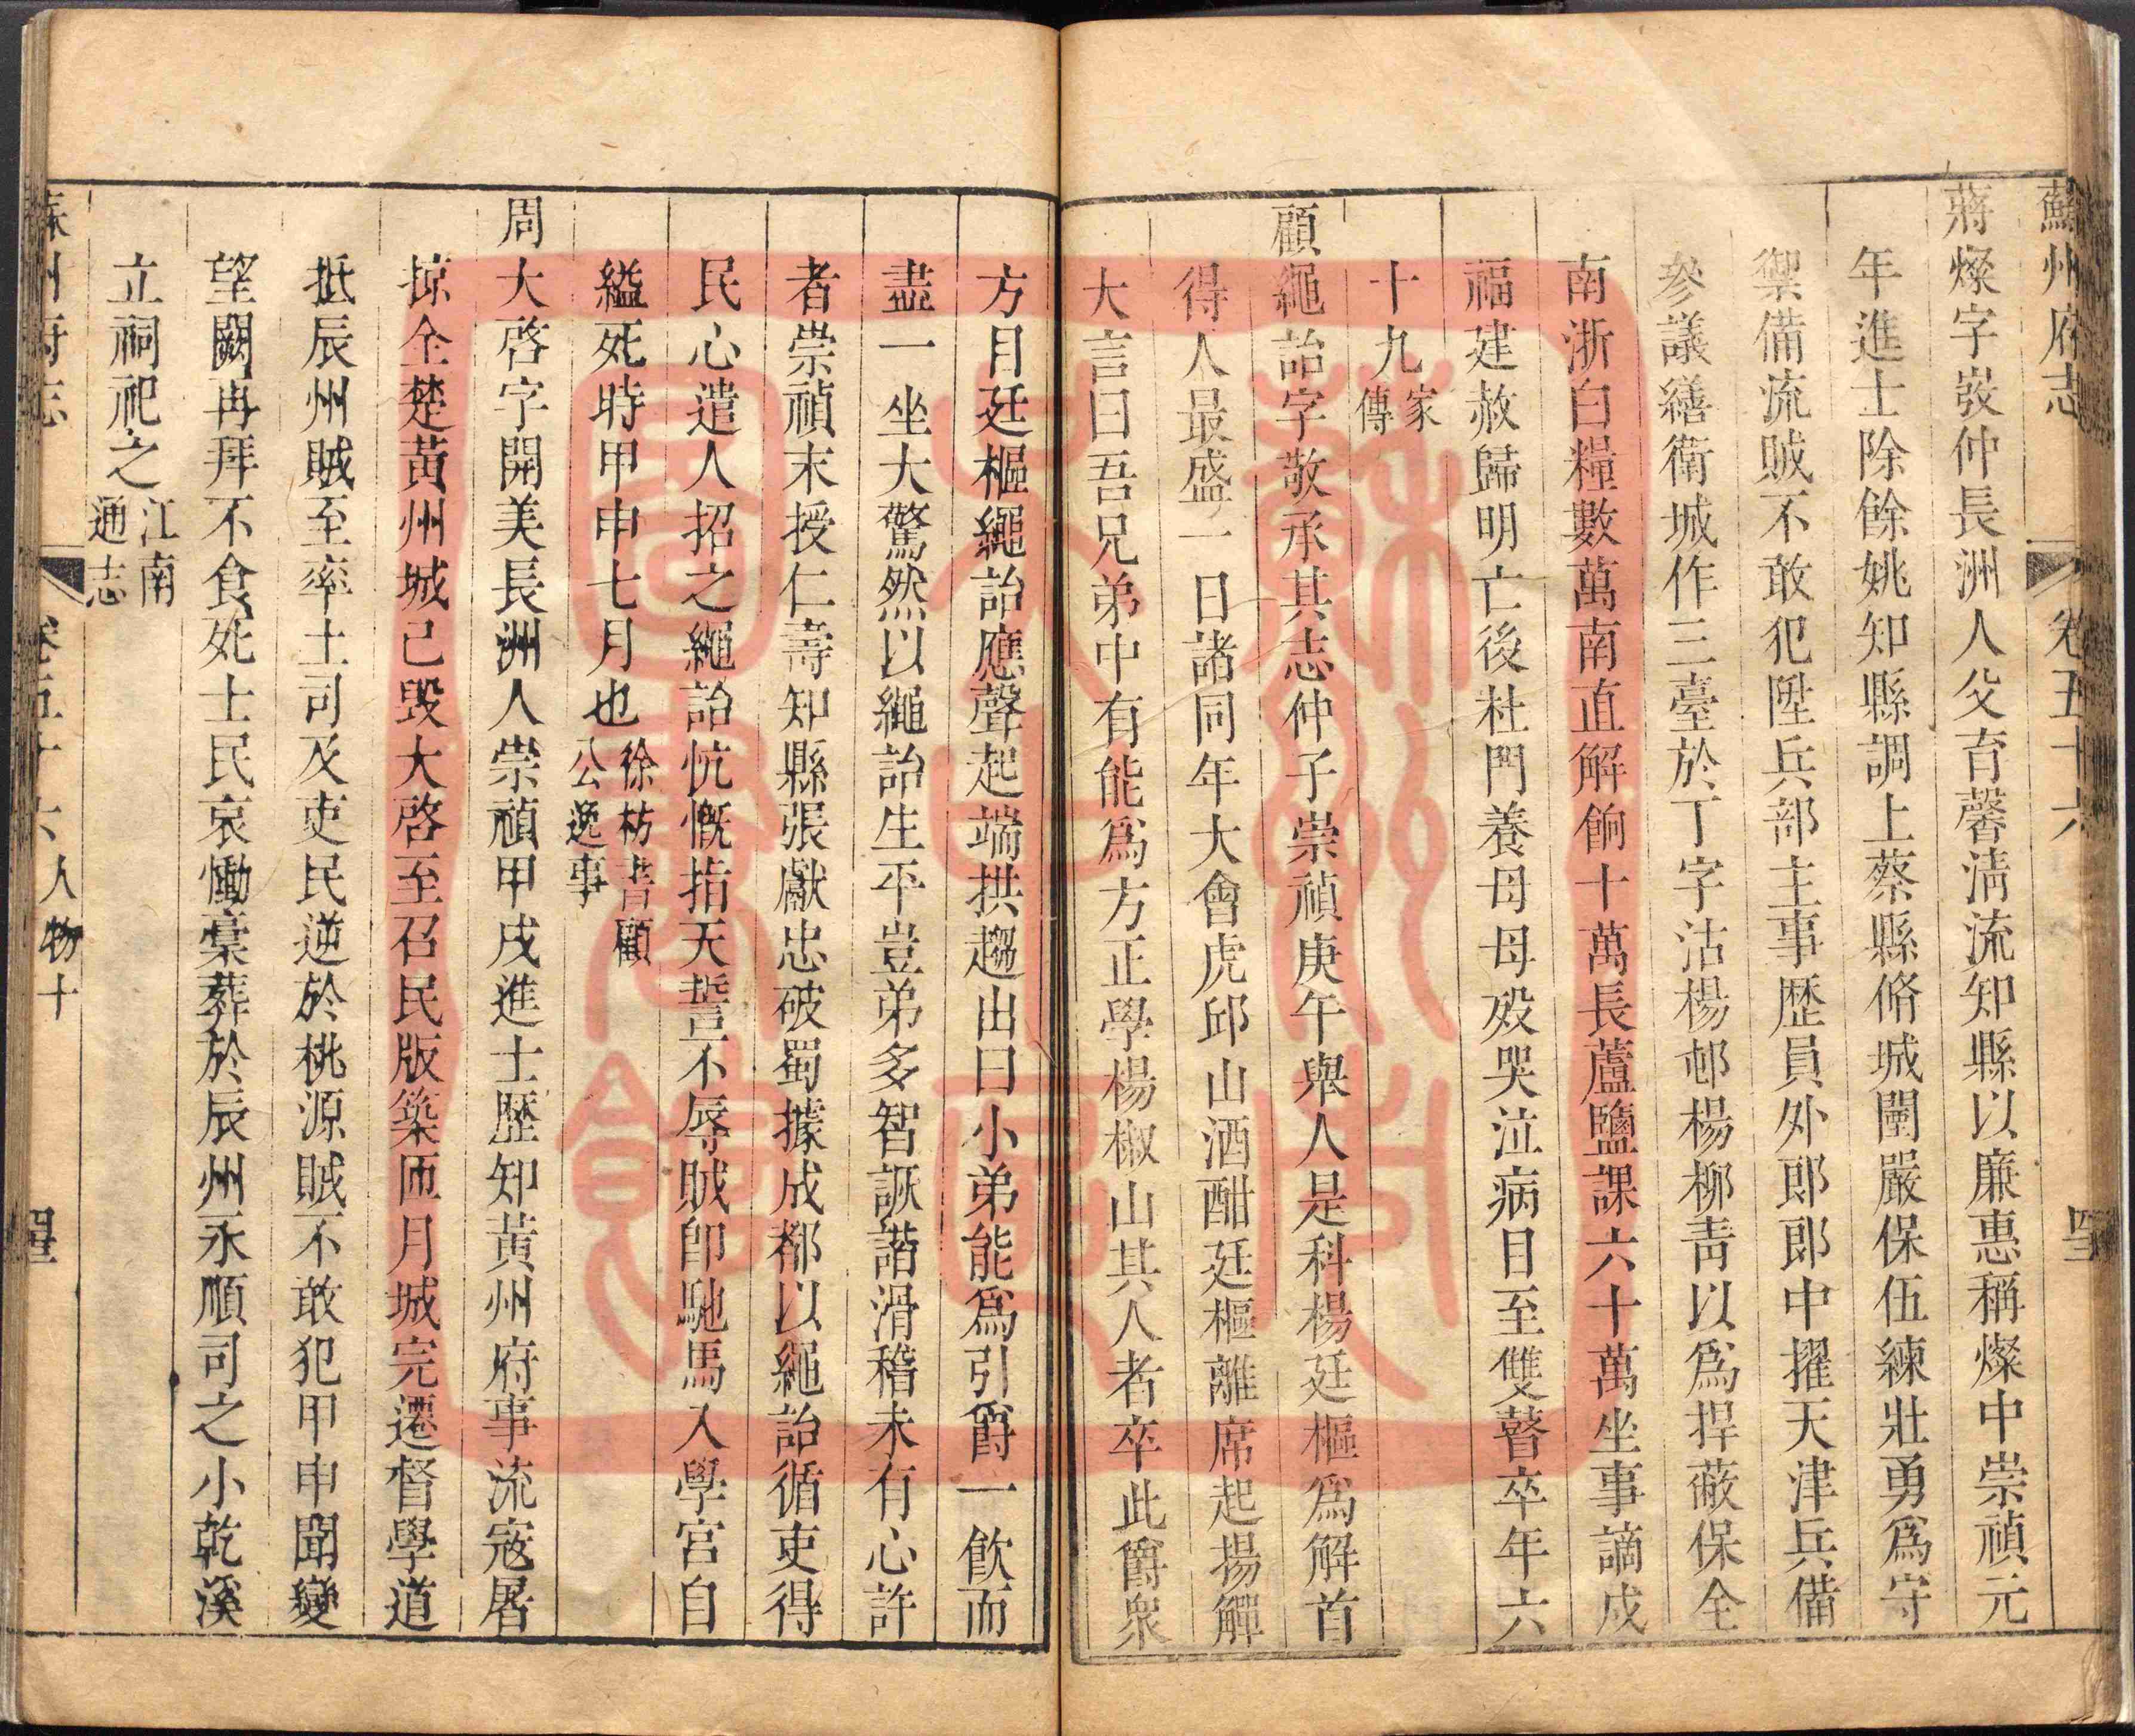 蘇州府志 卷五十六
蔣燦字㪚仲長洲人父育馨淸流知縣以廉惠稱燦中崇禎元
年進士除餘姚知縣調上蔡縣脩城闉嚴保伍練壯勇爲守
禦備流賊不敢犯陞兵部主事歴員外郎郎中擢天津兵備
參議繕衛城作三臺於丁字沽楊邨楊柳靑以爲捍蔽保全
南浙白糧數萬南直解餉十萬長蘆鹽課六十萬坐事謫戍
福建赦歸明亡後杜門養母母歿哭泣病目至雙瞽卒年六
十九 家傳
顧繩詒字敬承其志仲子崇禎庚午舉人是科楊廷樞爲解首
得人最盛一日諸同年大會虎邱山酒酣廷樞離席起揚觶
大言曰吾兄弟中有能爲方正學楊椒山其人者卒此爵衆
方目廷樞繩詒應聲起端拱趨出曰小弟能爲引爵一飮而
盡一坐大驚然以繩詒生平豈弟多智詼諧滑稽未有心許
者崇禎末授仁壽知縣張獻忠破蜀據成都以繩詒循吏得
民心遣人招之繩詒忼慨指天誓不辱賊卽馳馬入學宮自
縊死時甲申七月也 徐枋書顧公逸事
周大啓字開美長洲人崇禎甲戌進士歴知黃州府事流寇屠
掠全楚黃州城已毀大啓至召民版築匝月城完遷督學道
抵辰州賊至率土司及吏民逆於桃源賊不敢犯甲申聞變
望闕再拜不食死士民哀慟藁葬於辰州永順司之小乾溪
立祠祀之 江南通志
蘇州府志 卷五十六 人物十